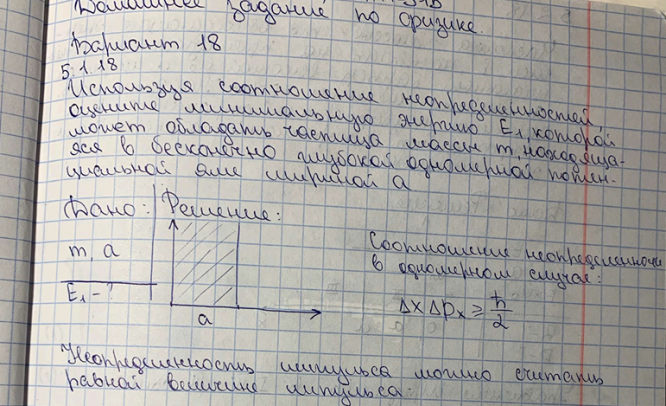 Домашнее задание по физике.
Вариант 18
5.1.18
Используя соотношение неопределенностей,
оцените минимальную энергию E₁, которой
может обладать частица массы m, находяща-
яся в бесконечно глубокой одномерной потен-
циальной яме шириной a
Дано: Решение:
m, a
E₁ - ?
a
Соотношение неопределенности
в одномерном случае:
Δx Δpₓ ≥ ħ/2
Неопределенность импульса можно считать
равной величине импульса: